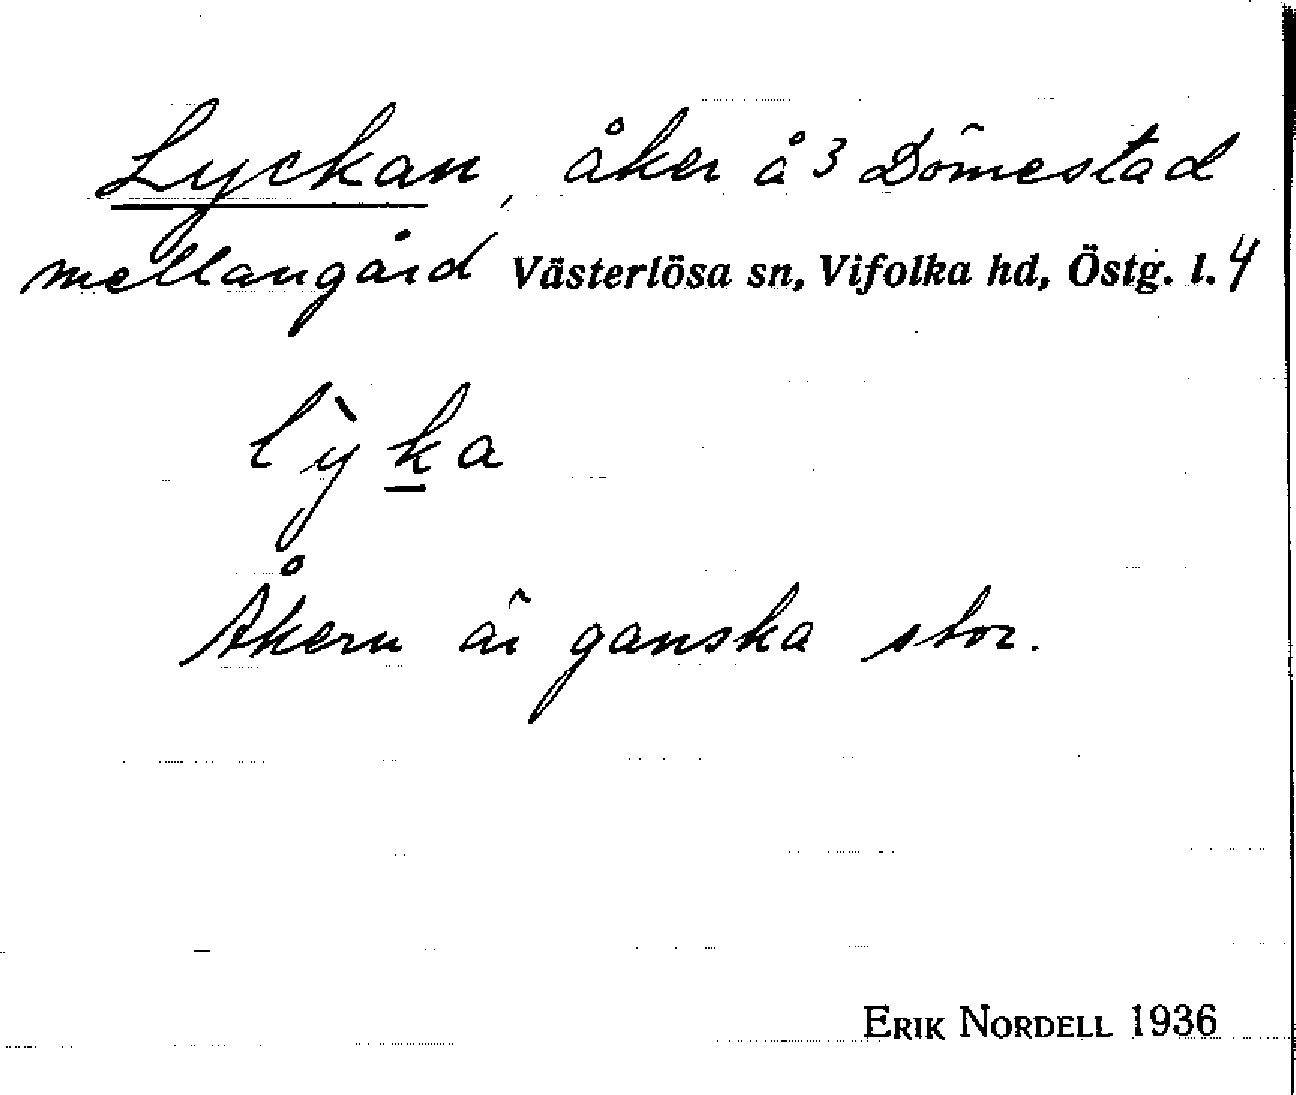 Lyckan, åker å 3 Dömestad
mellangård Västerlösa sn, Vifolka hd, Östg. l. 4
lỳka
Åkern är ganska stor.
ERIK NORDELL 1936